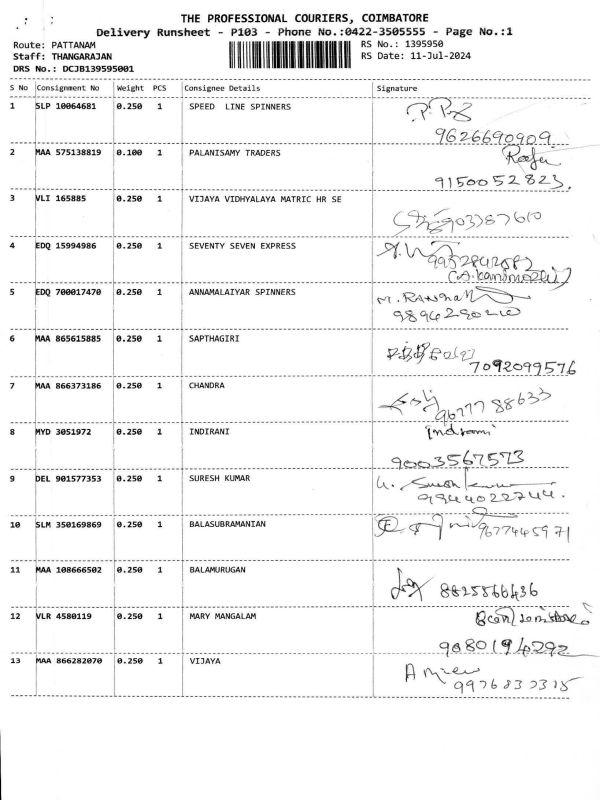 THE PROFESSIONAL COURIERS, COIMBATORE
Delivery Runsheet - P103 - Phone No.:0422-3505555 - Page No.:1
Route: PATTANAM
RS No.: 1395950
Staff: THANGARAJAN
RS Date: 11-Jul-2024
DRS No.: DCJB139595001
S No Consignment No Weight PCS Consignee Details Signature
1 SLP 10064681 0.250 1 SPEED LINE SPINNERS
9626690909
2 MAA 575138819 0.100 1 PALANISAMY TRADERS
9150052823.
3 VLI 165885 0.250 1 VIJAYA VIDHYALAYA MATRIC HR SE
4 EDQ 15994986 0.250 1 SEVENTY SEVEN EXPRESS
5 EDQ 700017470 0.250 1 ANNAMALAIYAR SPINNERS
6 MAA 865615885 0.250 1 SAPTHAGIRI
7092099576
7 MAA 866373186 0.250 1 CHANDRA
96777 88633
8 MYD 3051972 0.250 1 INDIRANI
Indrani
9003567573
9 DEL 901577353 0.250 1 SURESH KUMAR
9944022744.
10 SLM 350169869 0.250 1 BALASUBRAMANIAN
9677445971
11 MAA 108666502 0.250 1 BALAMURUGAN
8825866436
12 VLR 4580119 0.250 1 MARY MANGALAM
9080194292
13 MAA 866282070 0.250 1 VIJAYA